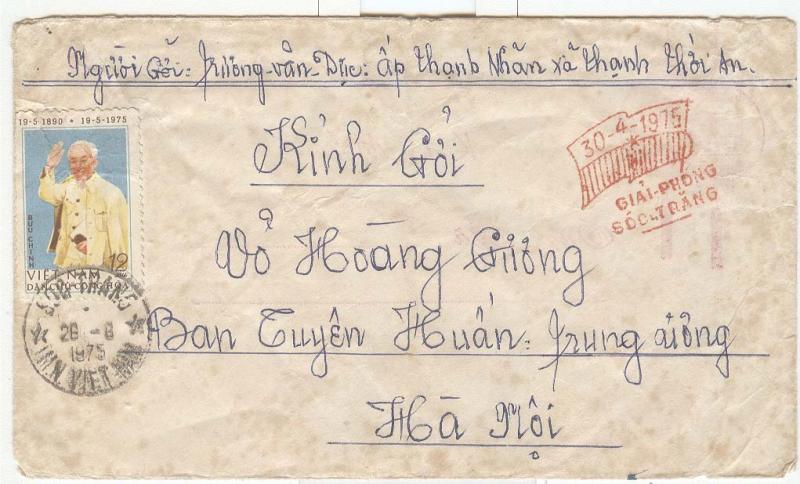 Người Gởi: Trương-văn-Dục: ấp thạnh Nhãn xã thạnh thới An.
19-5-1890 • 19-5-1975
BƯU CHÍNH
12
VIỆT NAM
DÂN CHỦ CỘNG HÒA
28 - 8
1975
VIET NAM
30-4-1975
GIẢI-PHÓNG
SÓC-TRĂNG
Kính Gởi
Vỏ Hoàng Cương
Ban Tuyên Huấn: Trung ương
Hà Nội